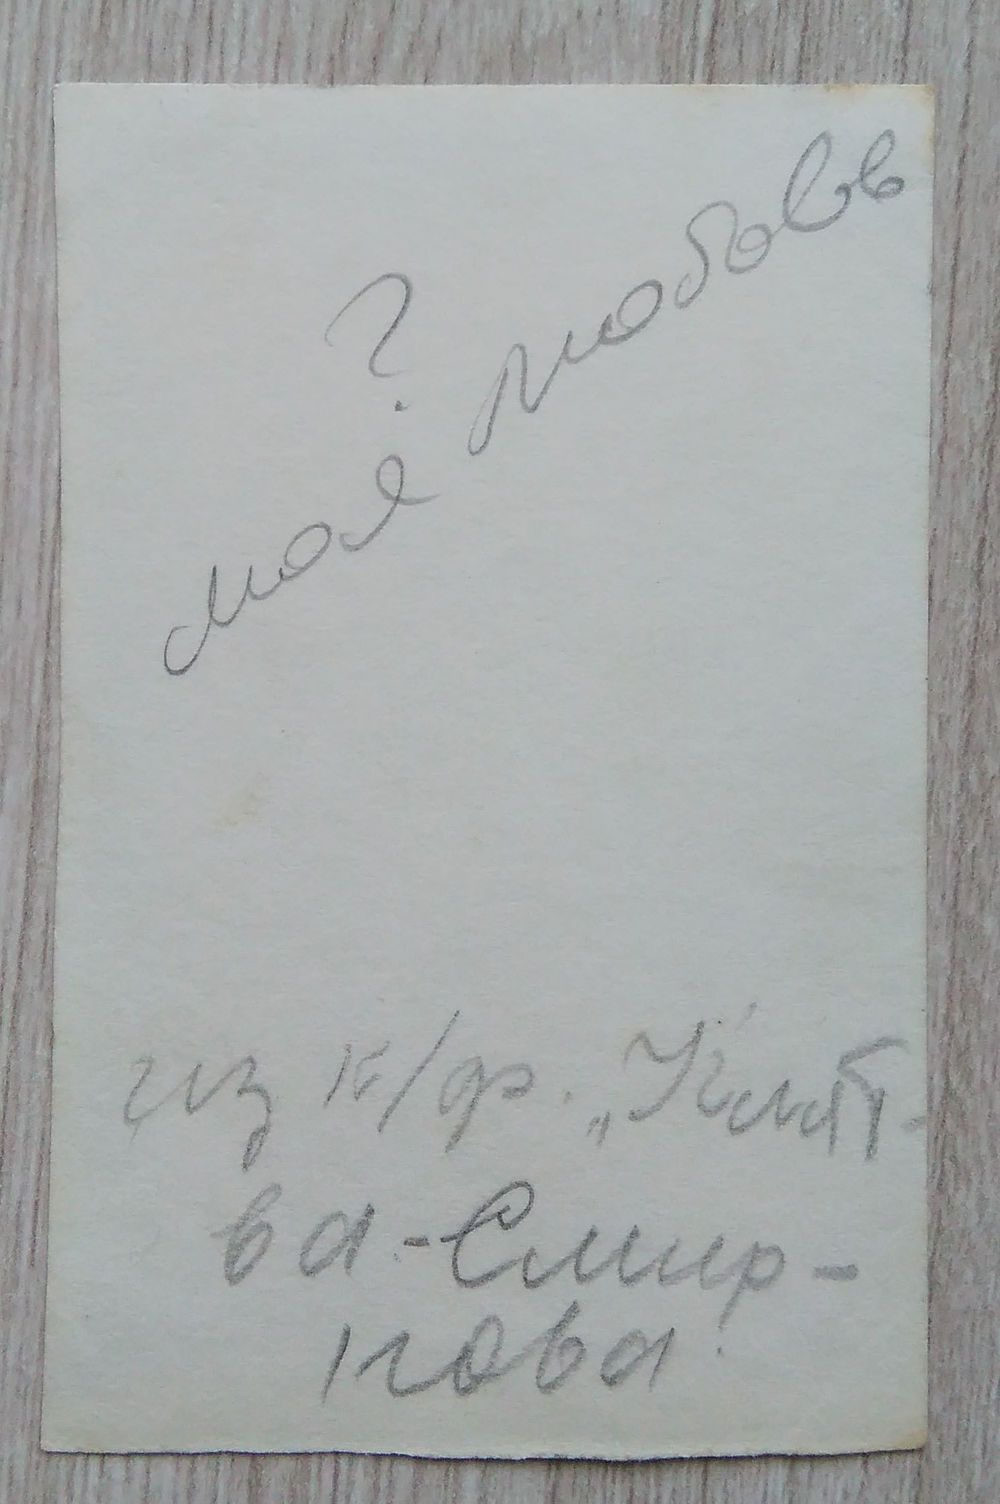 ?
моя любовь
из к/ф. „Клят-
ва-Смир-
нова.